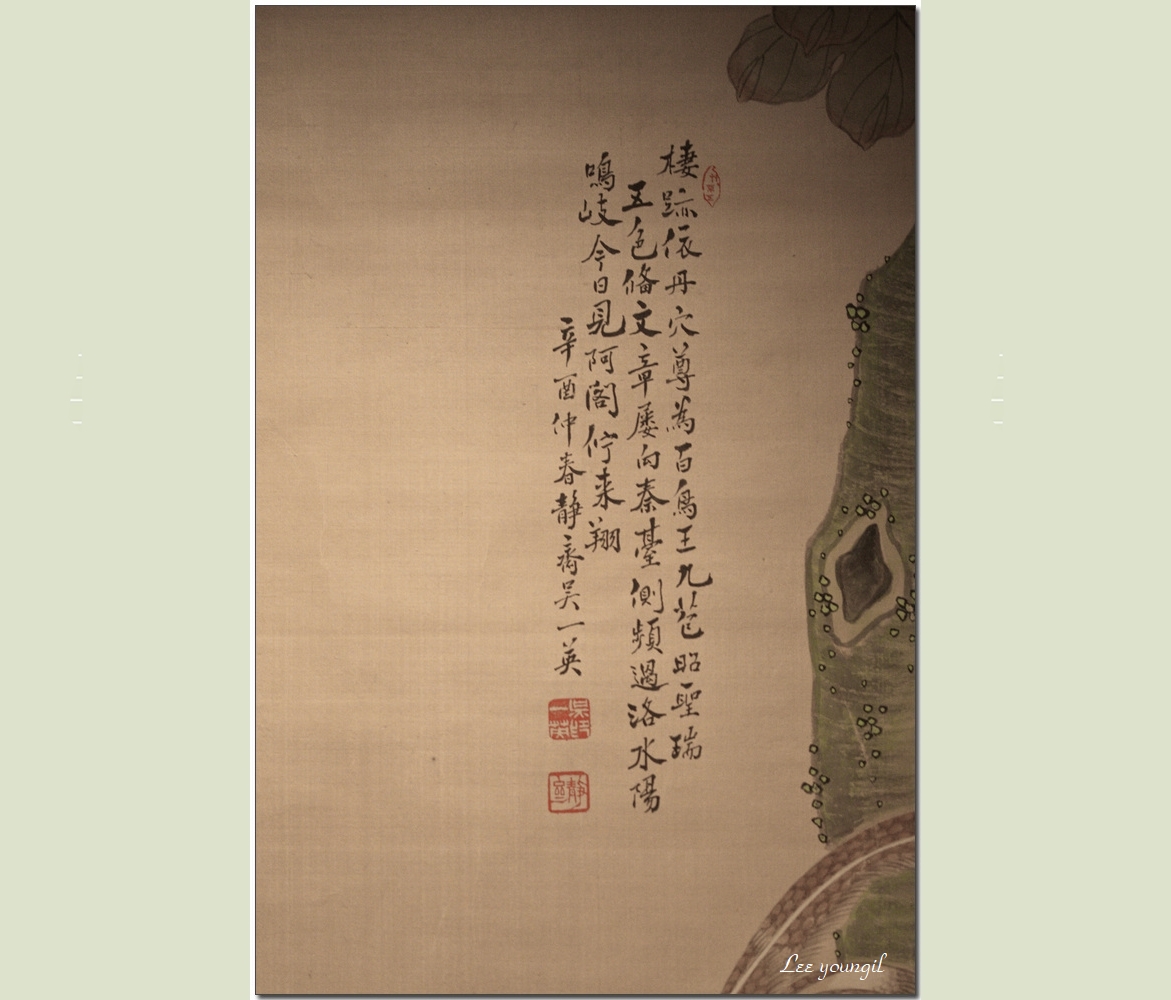 棲跡依丹穴尊為百鳥王九苞昭聖瑞
五色備文章屡向秦臺側頻過洛水陽
鳴岐今日見阿閣佇来翔
辛酉仲春靜齋吳一英
吳印一英
Lee youngil